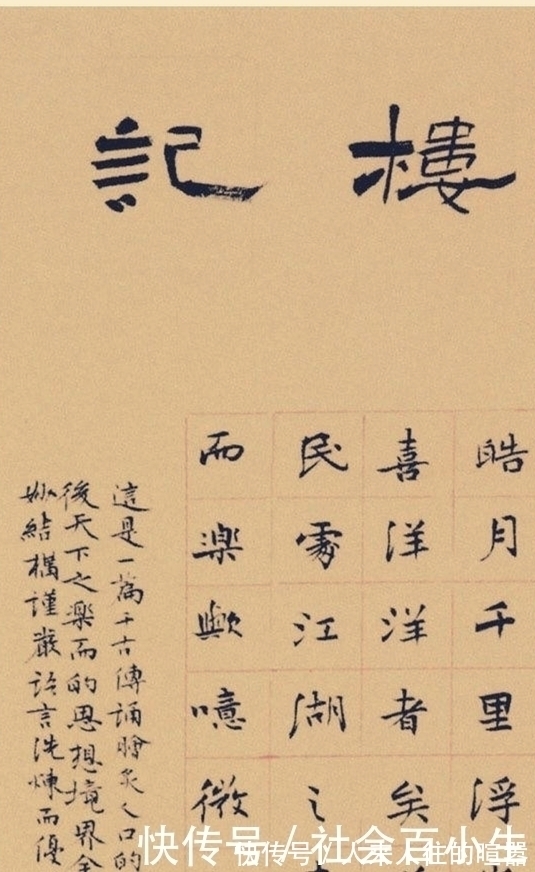 樓記
皓月千里浮
喜洋洋者矣
民處江湖之
而楽歟噫微
這是一篇千古傳誦膾炙人口的
後天下之楽而的思想境界全
妙結構謹嚴語言洗煉而優
快传号 / 社会百小生
快传号/人来人往的喧嚣